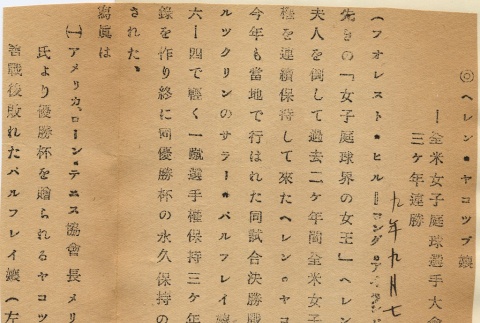 ◎ヘレン・ヤコップ孃
ー全米女子庭球選手大會
三ケ年連勝
九年九月七
(フオレスト・ヒルーロングアイランド
先きの「女子庭球界の女王」ヘレン
夫人を倒して過去二ケ年間全米女子
權を連續保持して來たヘレン・ヤコ
今年も當地で行はれた同試合決勝戰
ルツクリンのサラー・パルフレイ孃
六ー四で輕く一蹴選手權保持三ケ年
錄を作り終に同優勝杯の永久保持の
された、
寫眞は
㈠アメリカ、ローン・テニス協會長メリ
氏より優勝杯を贈られるヤコツ
善戰後敗れたパルフレイ孃(左